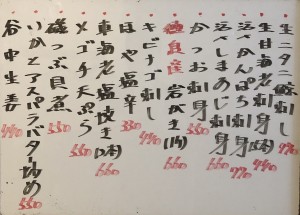 生ニタニ鯨刺し 770
生甘海老刺し(5本) 440
活〆かんぱち刺身 770
活〆しまあじ刺身 660
かつお刺身 660
徳島産 岩がき(1ケ) 660
キビナゴ刺し
ほや塩辛 330
車海老塩焼き(2本) 660
メゴチ天ぷら 550
磯つぶ貝煮 550
いかとアスパラバター炒め 550
谷中生姜 440